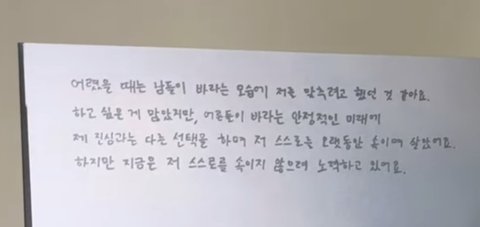 어렸을 때는 남들이 바라는 모습에 저를 맞추려고 했던 것 같아요.
하고 싶은 게 많았지만, 어른들이 바라는 안정적인 미래에
제 진심과는 다른 선택을 하며 저 스스로를 오랫동안 속이며 살았어요.
하지만 지금은 저 스스로를 속이지 않으려 노력하고 있어요.